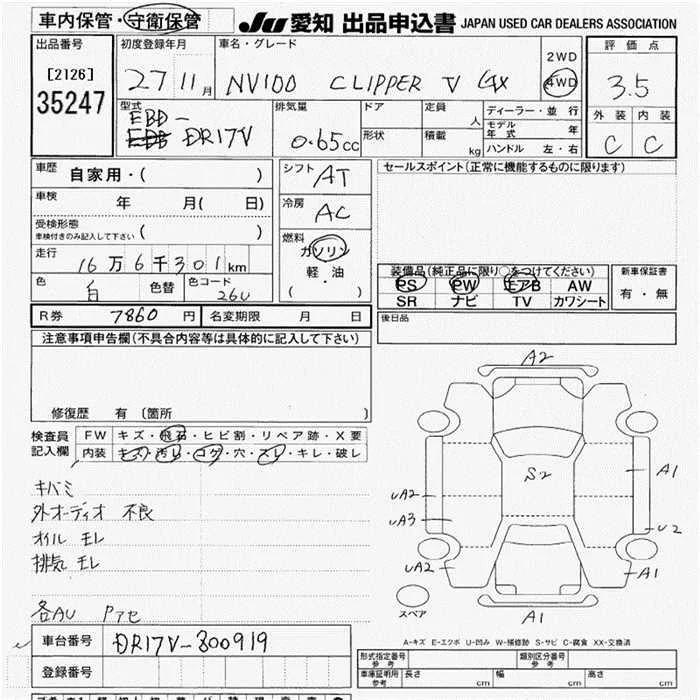 車内保管・守衛保管 JU 愛知 出品申込書 JAPAN USED CAR DEALERS ASSOCIATION
出品番号 初度登録年月 車名・グレード 評価点
[2126] 27 11月 NV100 CLIPPER V GX 2WD
35247 4WD 3.5
型式 排気量 ドア 定員 人 ディーラー・並行 外装 内装
EBD- モデル年式 年
EBD DR17V 0.65cc 形状 積載 kg ハンドル 左・右 C C
車歴 自家用・( ) シフト AT セールスポイント(正常に機能するものに限ります)
車検 年 月( 日) 冷房 AC
受検形態
車検付きのみ記入して下さい ( ) 燃料
走行 16万6千301km ガソリン 装備品(純正品に限り○をつけてください) 新車保証書
色 白 色替 色コード 26U 軽・油 PS PW エアB AW 有・無
( ) SR ナビ TV カワシート
R券 7860円 名変期限 月 日 後日品
注意事項申告欄(不具合内容等は具体的に記入して下さい)
A2
修復歴 有 [箇所 ]
検査員記入欄 FW キズ・飛石・ヒビ割・リペア跡・X要
内装 キズ・汚レ・コゲ・穴・スレ・キレ・破レ
S2
A1
キバミ
UA2
外オーディオ 不良
UA3
U2
オイル モレ
排気 モレ
UA2
A1
スペア
各AU Pアセ
A1
車台番号 DR17V-300919
A-キズ E-エクボ U-凹み W-補修跡 S-サビ C-腐食 XX-交換済
登録番号
形式指定番号 参考 類別区分番号 参考
車庫証明用 参考 長さ cm 幅 cm 高さ cm